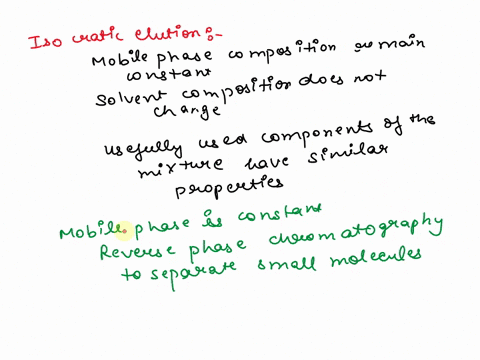 Iso cratic elution:-
Mobile phase composition remain
constant
Solvent composition does not
change
usefully used components of the
mixture have similar
properties
Mobile phase is constant
Reverse phase chromatography
to separate small molecules